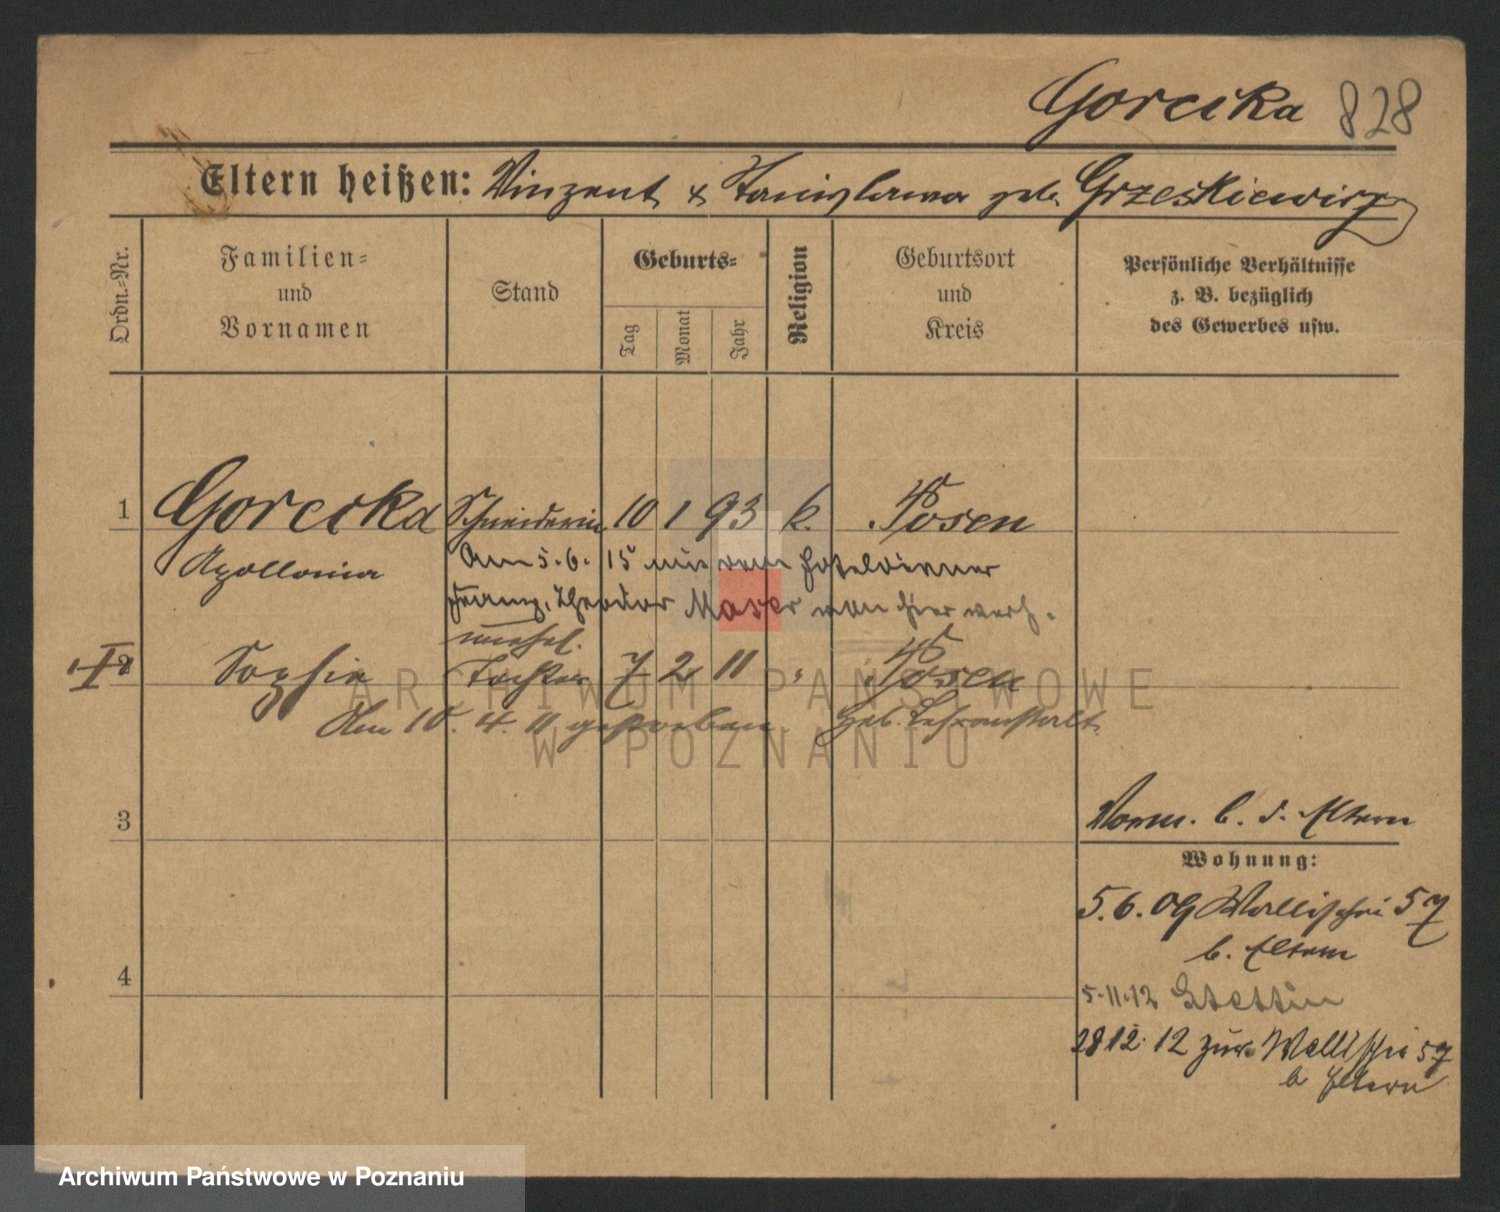 Gorecka 828
Eltern heißen: Vinzent & Stanislawa geb. Grzeskiewicz
Ordn.-Nr.
Familien-
und
Vornamen
Stand
Geburts-
Tag
Monat
Jahr
Religion
Geburtsort
und
Kreis
Persönliche Verhältnisse
z. B. bezüglich
des Gewerbes usw.
1 Gorecka Schneiderin 10 1 93 k. Posen
Apollonia
Am 5.6. 15 mit dem Hoteldiener
Franz, Theodor Maser von hier verh.
unehel.
I Sophie Tochter 7 2 11 " Posen
Am 15. 4. 11 gestorben geb. Lehranstalt
3
Vorm. b. d. Eltern
Wohnung:
5.6.09 Wallischei 57
b. Eltern
4
5.11.12 Stettin
28 12. 12 zur. Wallischei 57
b Eltern
ARCHIWUM PAŃSTWOWE
W POZNANIU
Archiwum Państwowe w Poznaniu